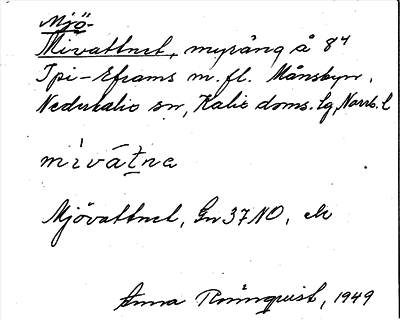 Mjö-
Mivattnet, myräng å 8⁴
Ipi-Eframs m. fl. Månsbyn,
Nederkalix sn, Kalix doms. lg, Norrb. l
mìvátna
Mjövattnet, Gn 37 NO, ek
Anna Rönnquist, 1949